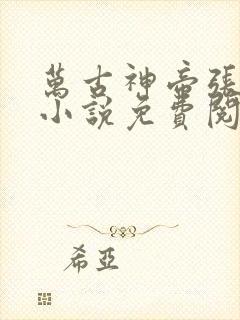 萬古神帝張
小說免費閱
希亞